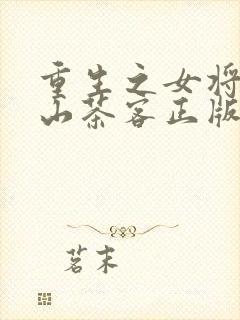 重生之女将
山茶客正版
茗末